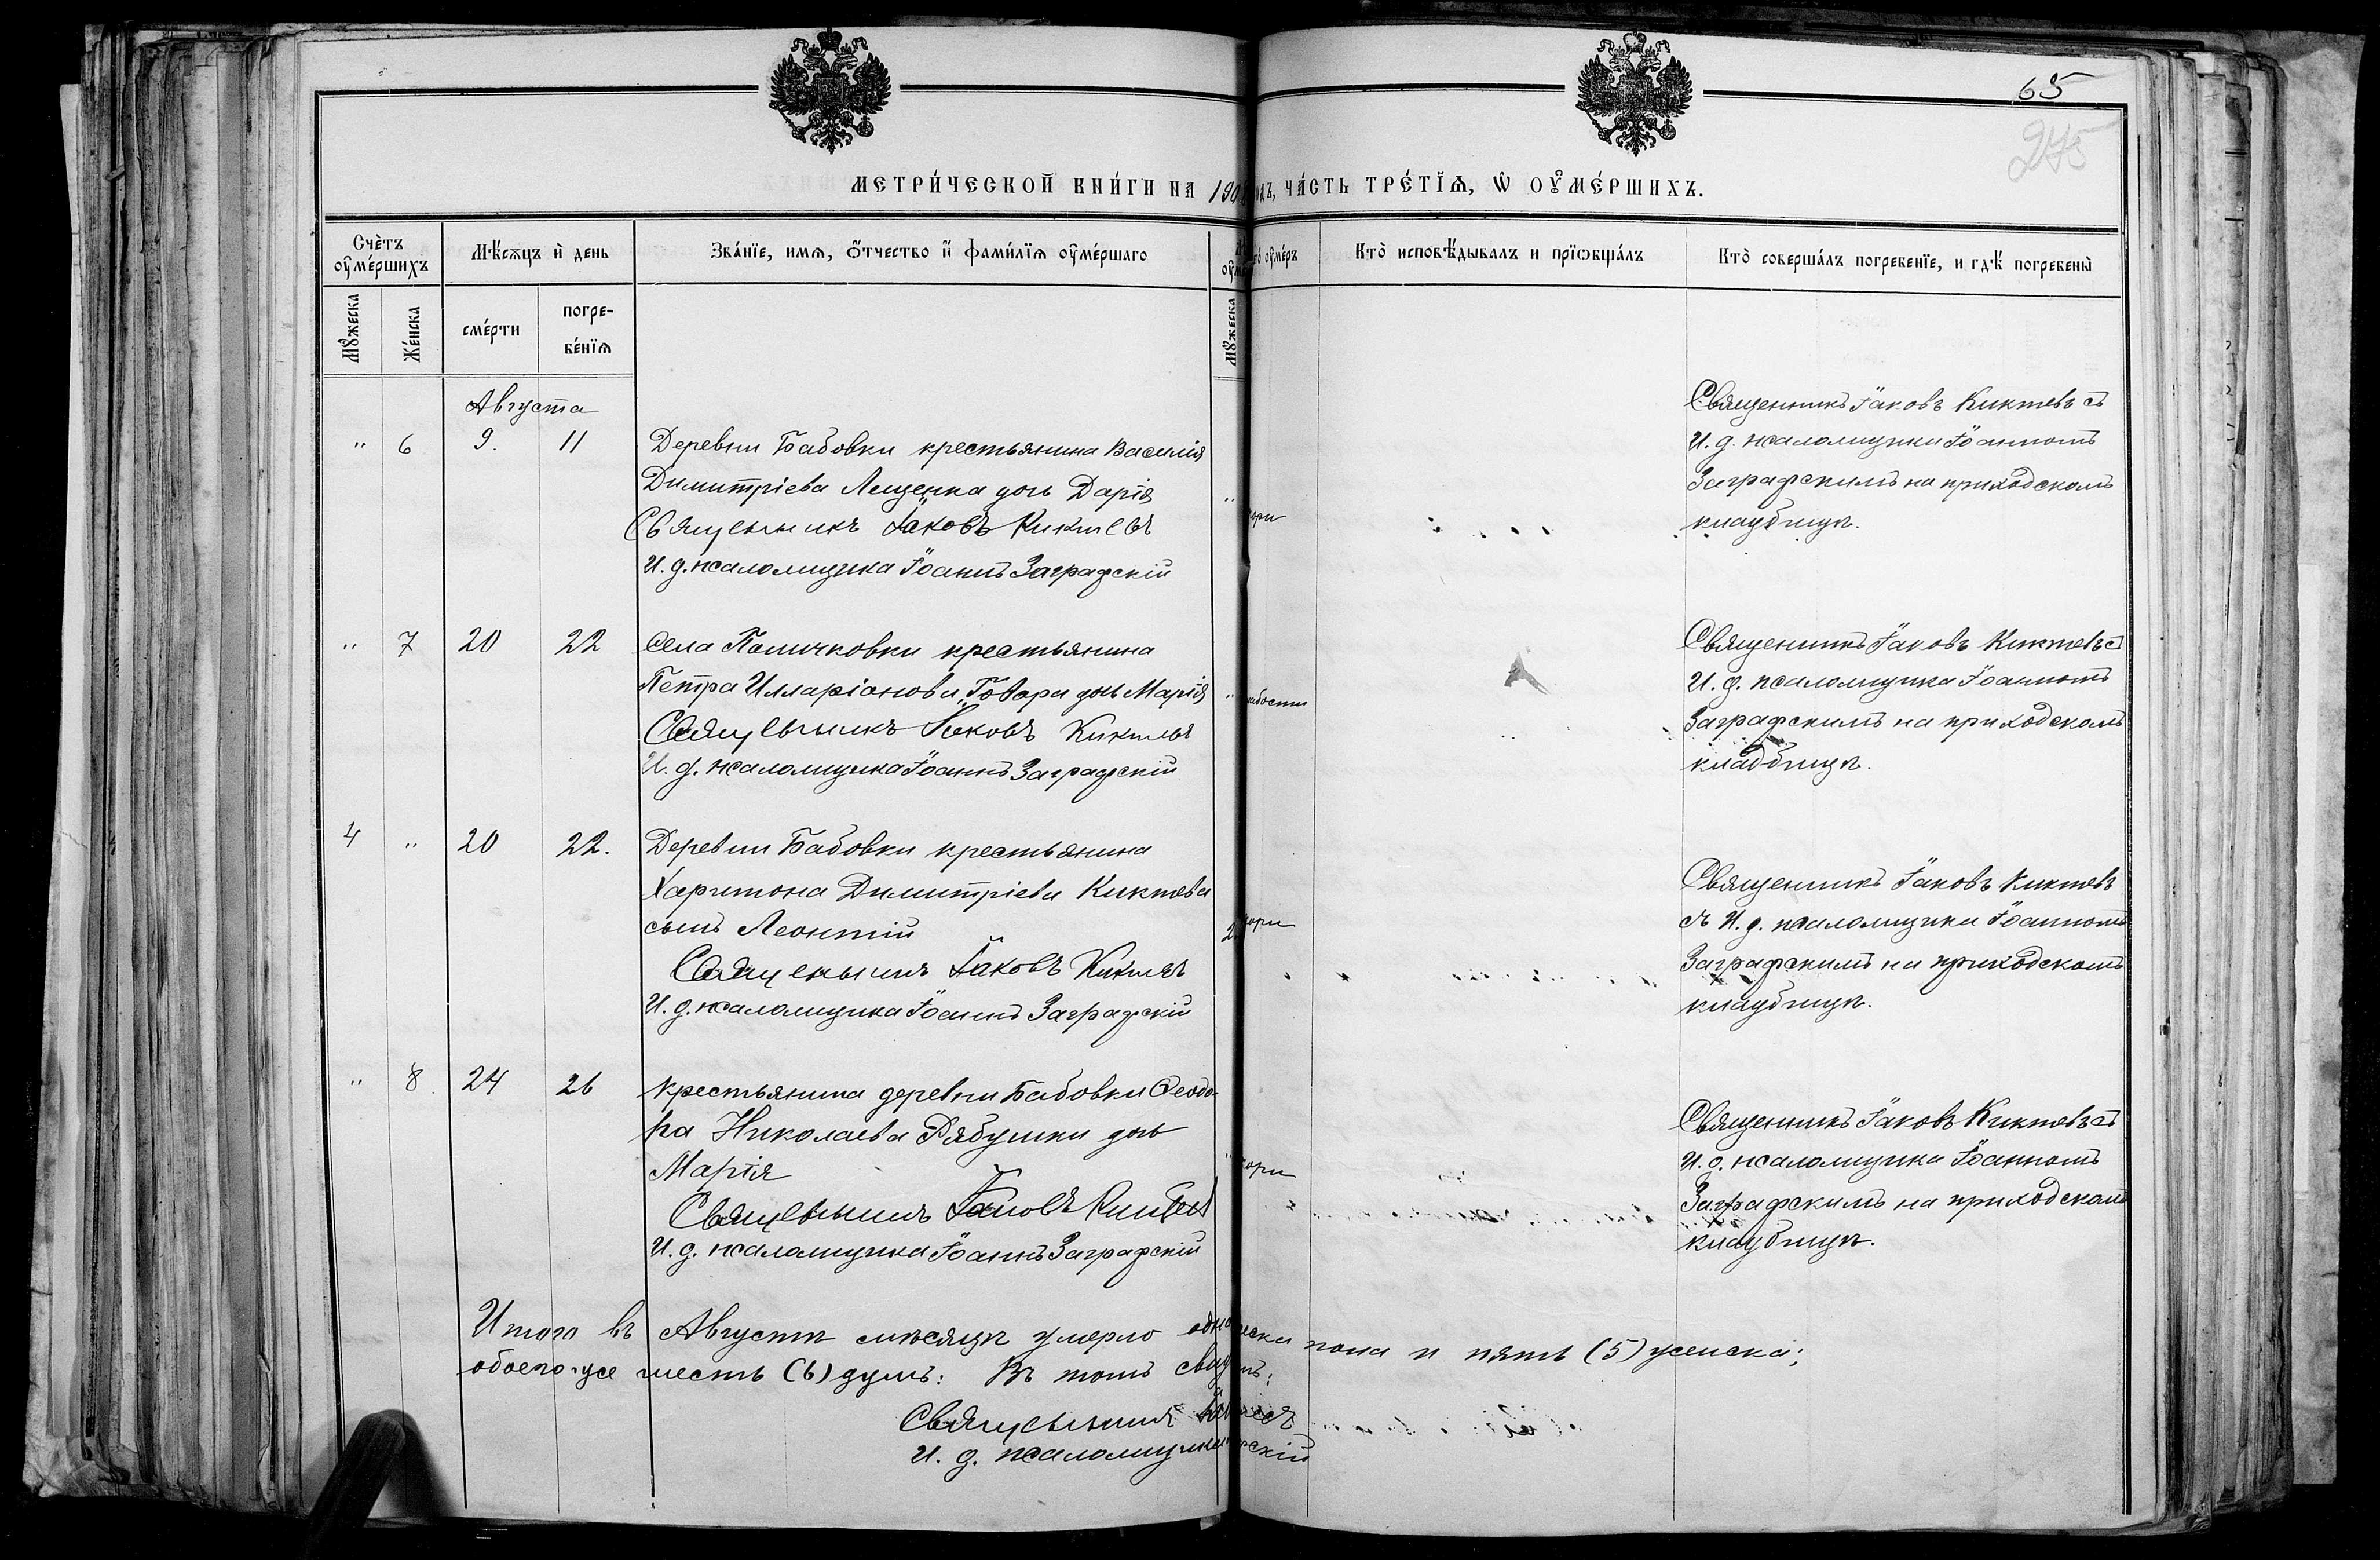 65
275
МЕТРИ́ЧЕСКОЙ КНИ́ГИ НА 190 ОДЪ, ЧА́СТЬ ТРЕ́ТЇѦ, Ѡ҆ ОУ҆МЕ́РШИХЪ.
Счѐтъ оу҆ме́ршихъ
Мѣ́сѧцъ и҆ день
Зва́нїе, имѧ, ѻ҆́тчество и҆ фами́лїѧ оу҆ме́ршаго
оу҆ме́ръ
Кто̀ исповѣ́дывалъ и прїѡбща́лъ
Кто̀ соверша́лъ погребенїе, и гдѣ́ погребены̀
Мꙋ́жеска
Же́нска
сме́рти
погре-
бе́нїѧ
Мꙋ́жеска
Августа
" 6 9. 11
Деревни Бабовки крестьянина Василія
Димитріева Лещенка дочь Дарія
Священникъ Іаковъ Киктевъ
И. д. псаломщика Іоаннъ Заградскій
"
кори
Священникъ Іаковъ Киктевъ съ
И. д. псаломщика Іоанномъ
Заградскимъ на приходскомъ
кладбищѣ.
" 7 20 22
Села Помичковки крестьянина
Петра Илларіонова Говора дочь Марія
Священникъ Іаковъ Киктевъ
И. д. псаломщика Іоаннъ Заградскій
"
слабости
Священникъ Іаковъ Киктевъ съ
И. д. псаломщика Іоанномъ
Заградскимъ на приходскомъ
кладбищѣ.
4 " 20 22.
Деревни Бабовки крестьянина
Харитона Димитріева Киктева
сынъ Леонтій
Священникъ Іаковъ Киктевъ
И. д. псаломщика Іоаннъ Заградскій
2
кори
Священникъ Іаковъ Киктевъ
съ И. д. псаломщика Іоанномъ
Заградскимъ на приходскомъ
кладбищѣ.
" 8. 24 26
Крестьянина деревни Бабовки Ѳеодо-
ра Николаева Рябушки дочь
Марія
Священникъ Іаковъ Киктев
И. д. псаломщика Іоаннъ Заградскій
"
кори
Священникъ Іаковъ Киктевъ съ
И. д. псаломщика Іоанномъ
Заградскимъ на приходскомъ
кладбищѣ.
Итого въ Августѣ мѣсяцѣ умерло пола и пять (5) женска;
обоего же шесть (6) душъ: Въ томъ
Священникъ
И. д. псаломщика